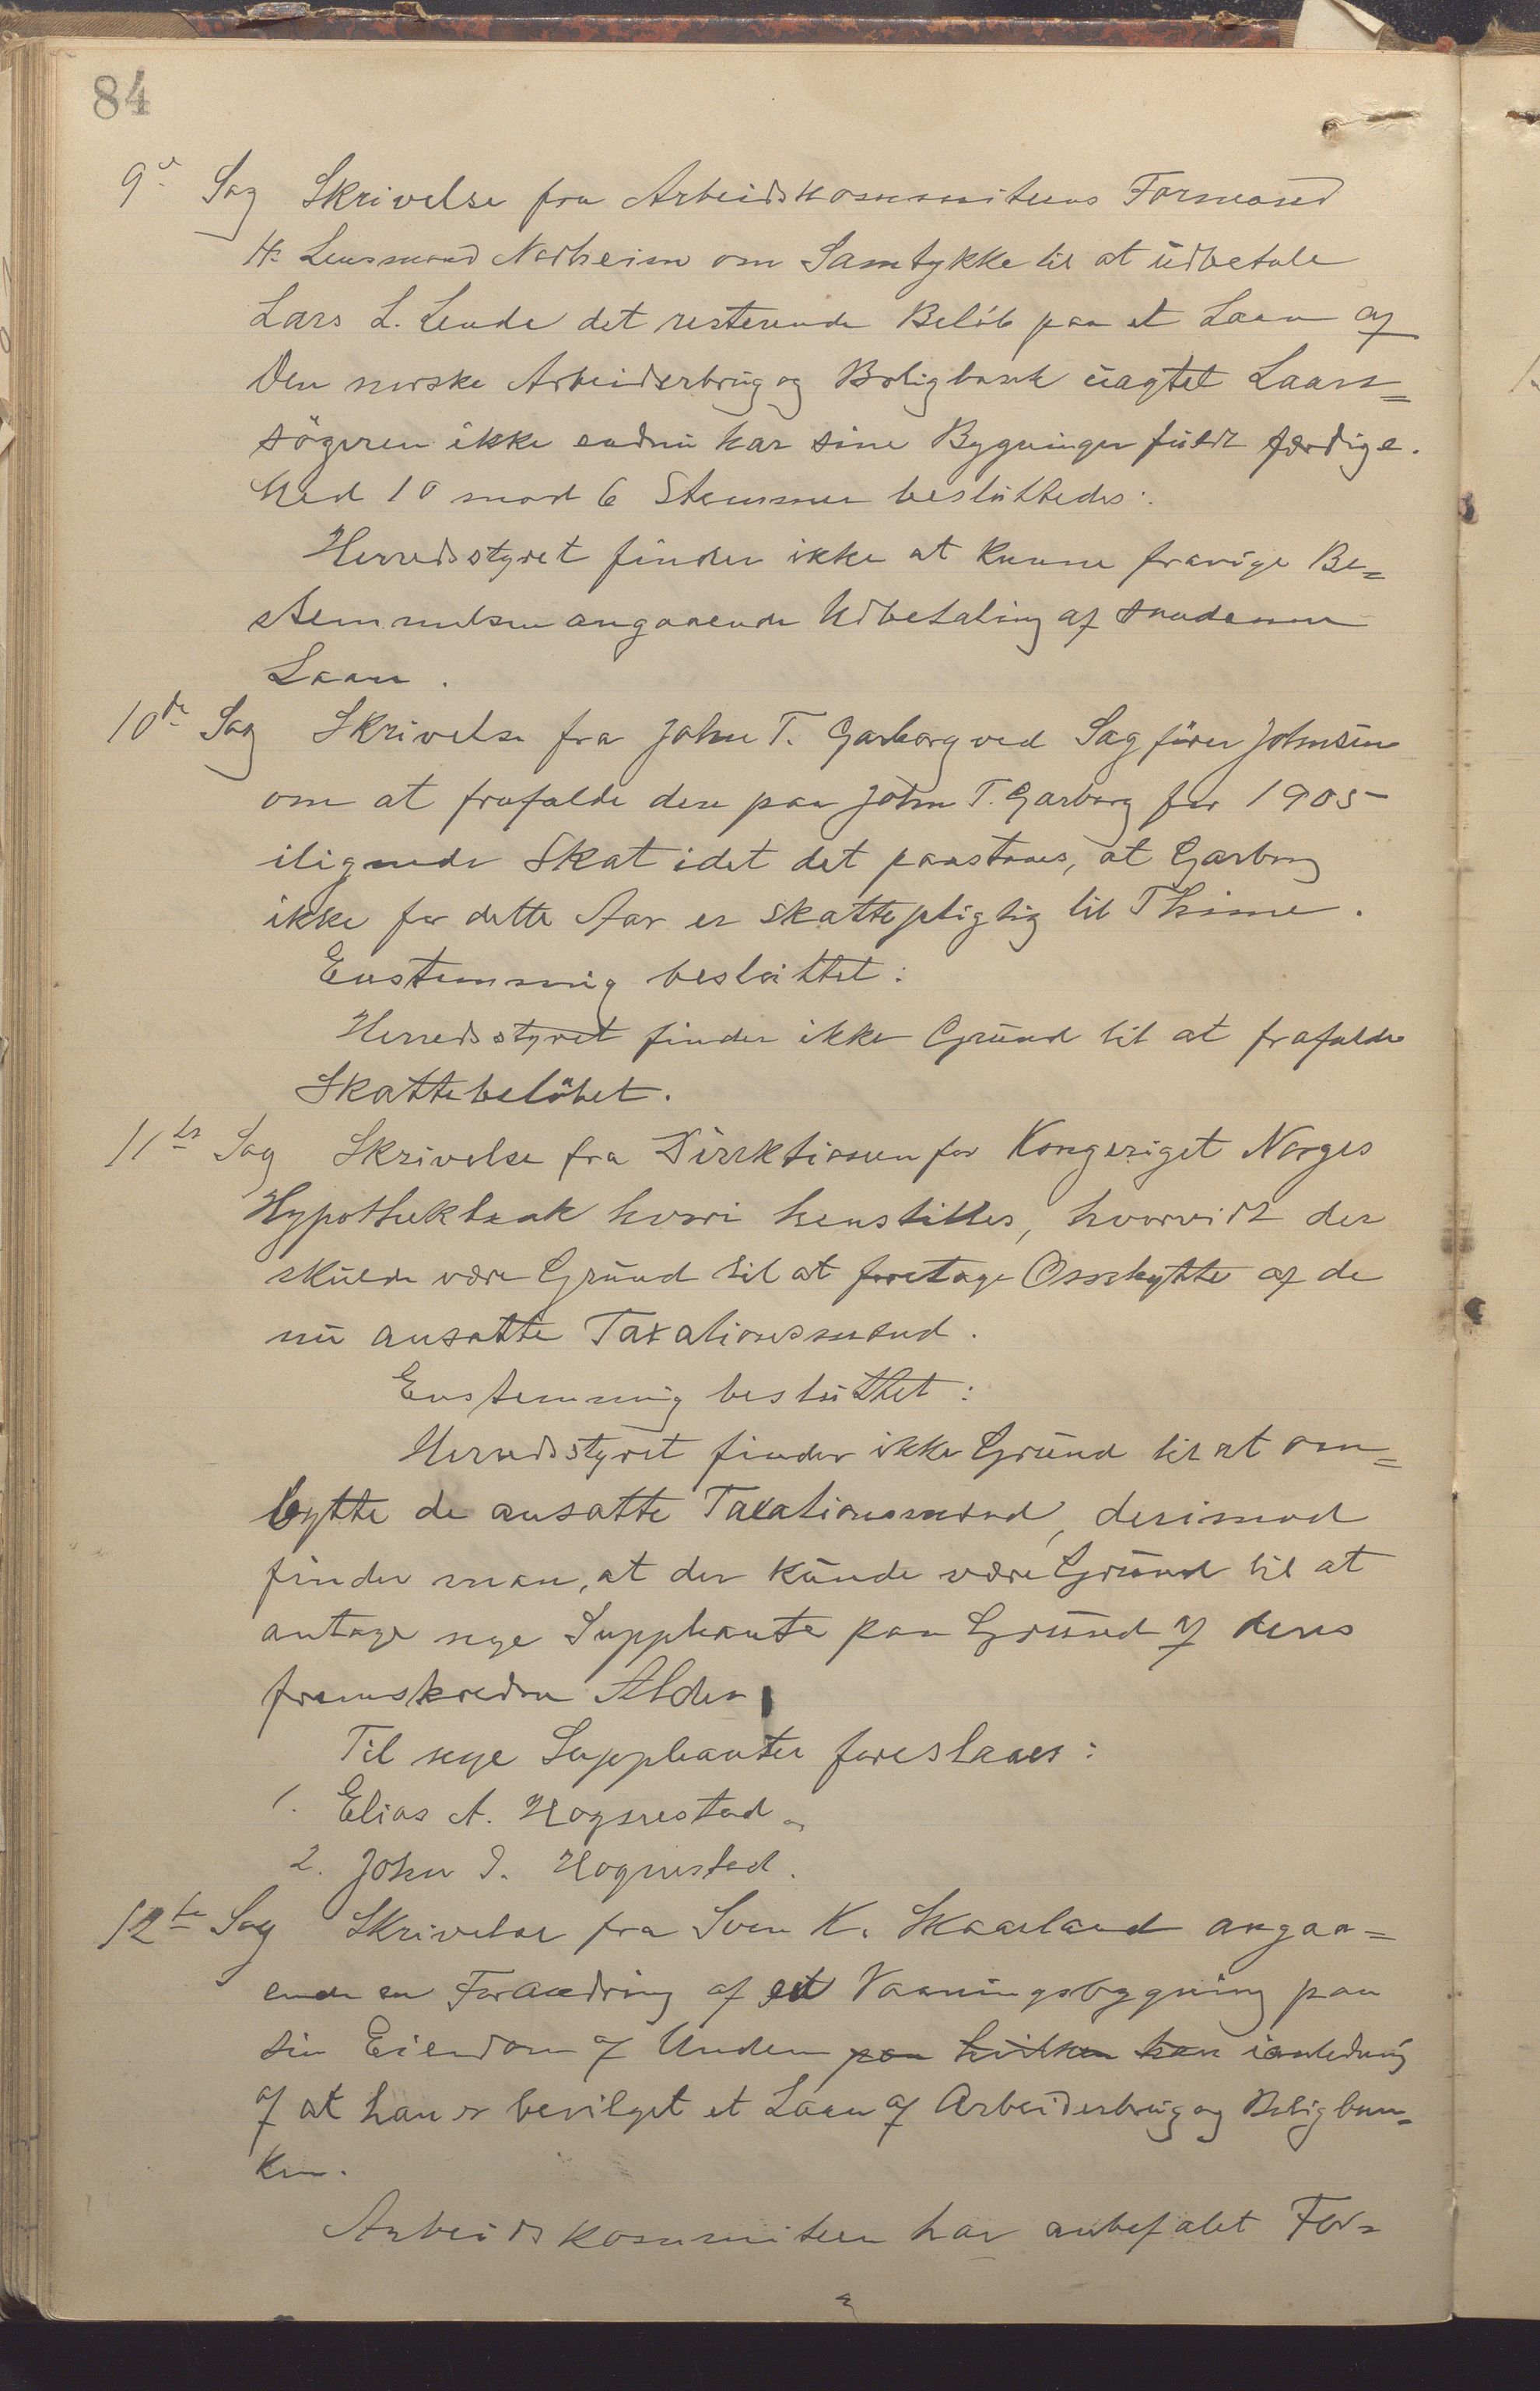 84
9de Sag Skrivelse fra Arbeidskommiteens Formand
Hr. Lensmand Norheim om Samtykke til at udbetale
Lars L. Lende det resterende Beløb paa et Laan af
Den norske Arbeiderbrug og Boligbank uagtet Laan=
søgeren ikke endnu har sine Bygninger fuldt færdige.
Med 10 mod 6 Stemmer besluttedes:
Herredsstyret finder ikke at kunne fravige Be=
stemmelsen angaaende Udbetaling af saadanne
Laan.
10de Sag Skrivelse fra John T. Garborg ved Sagfører Johnsen
om at frafalde den paa John T. Garborg for 1905
ilignede Skat idet det paastaaes, at Garborg
ikke for dette Aar er skattepligtig til Thime.
Enstemmig besluttet:
Herredsstyret finder ikke Grund til at frafalde
Skattebeløbet.
11te Sag Skrivelse fra Direktionen for Kongeriget Norges
Hypothekbank hvori henstilles, hvorvidt der
skulde være Grund til at foretage Ombytte af de
nu ansatte Taxationsmænd.
Enstemmig besluttet:
Herredsstyret finder ikke Grund til at om=
bytte de ansatte Taxationsmænd, derimod
finder man, at der kunde være Grund til at
antage nye Suppleanter paa Grund af deres
fremskredne Alder.
Til nye Suppleanter foreslaaes:
1. Elias A. Hognestad
2. John I. Hognestad.
12te Sag Skrivelse fra Sven K. Skaarland angaa=
ende en Forandring af et Vaaningsbygning paa
sin Eiendom af Undem paa hvilken han i anledning
af at han er bevilget et Laan af Arbeiderbrug og Boligban=
ken.
Arbeidskommiteen har anbefalet For=